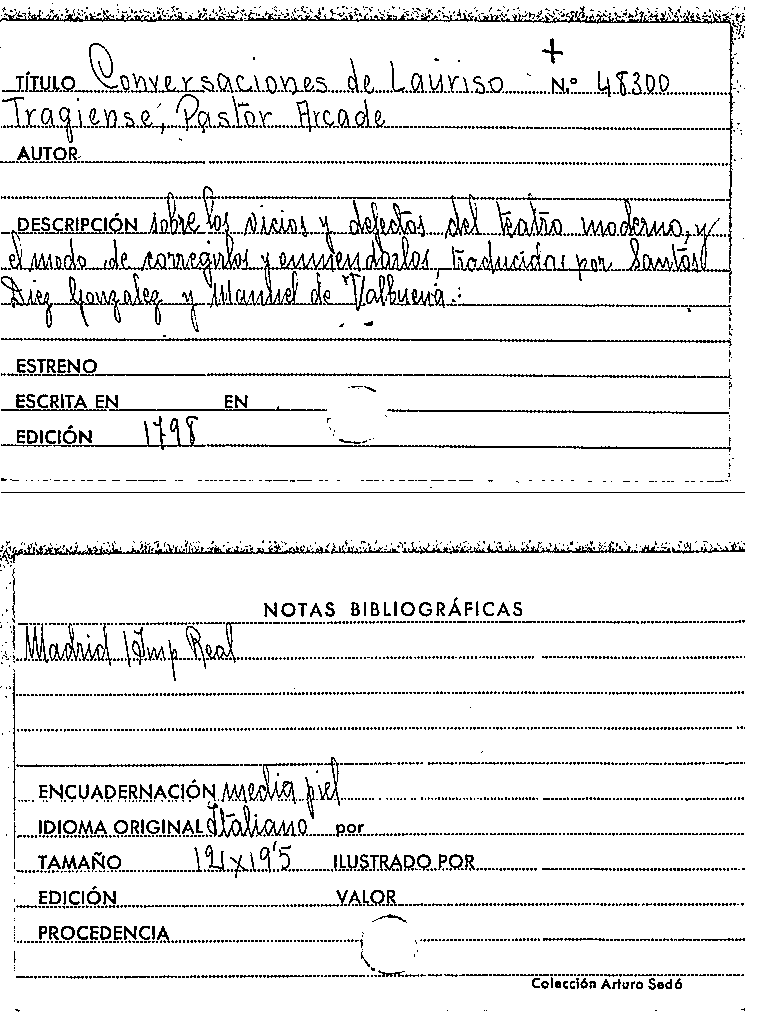 +
TÍTULO Conversaciones de Lauriso N.º 48300
Tragiense, Pastor Arcade
AUTOR
DESCRIPCIÓN sobre los vicios y defectos del teatro moderno, y
el modo de corregirlos y enmendarlos, traducidas por Santos
Diez Gonzalez y Manuel de Valbuena.
ESTRENO
ESCRITA EN EN
EDICIÓN 1798
NOTAS BIBLIOGRÁFICAS
Madrid Imp Real
ENCUADERNACIÓN media piel
IDIOMA ORIGINAL Italiano por
TAMAÑO x19'5 ILUSTRADO POR
EDICIÓN VALOR
PROCEDENCIA
Colección Arturo Sedó